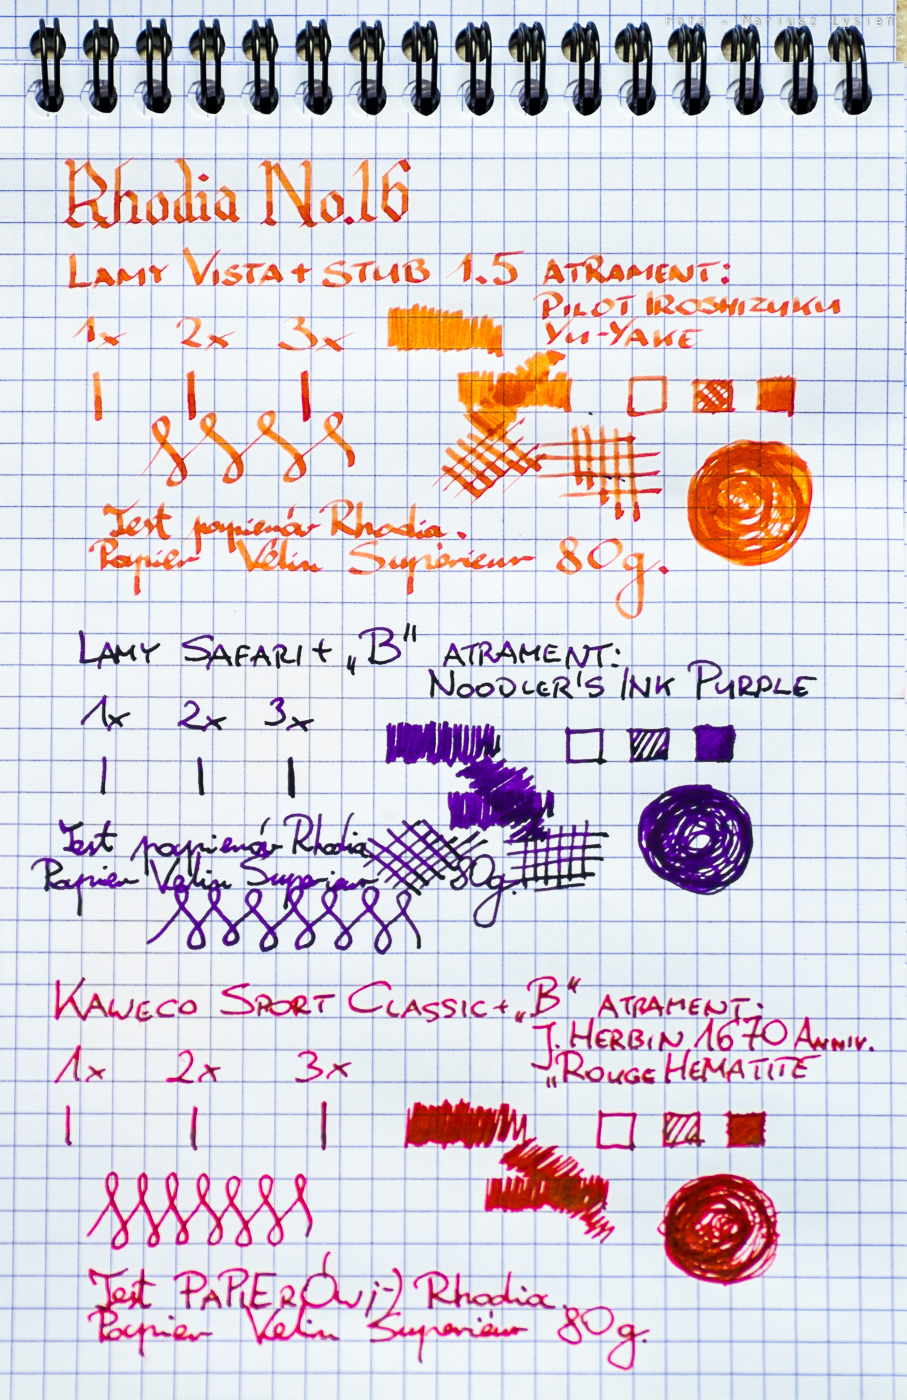 Foto - Mariusz Łysień
Rhodia No.16
LAMY VISTA + STUB 1.5 ATRAMENT:
PILOT IROSHIZUKU
YU-YAKE
1x 2x 3x
Test papierów Rhodia.
Papier Velin Superieur 80g.
LAMY SAFARI + „B” ATRAMENT:
NOODLER'S INK PURPLE
1x 2x 3x
Test papierów Rhodia
Papier Velin Superieur 80g.
KAWECO SPORT CLASSIC + „B” ATRAMENT:
J. HERBIN 1670 ANNIV.
„ROUGE HEMATITE”
1x 2x 3x
Test PAPIERÓW ;-) Rhodia.
Papier Velin Superieur 80g.